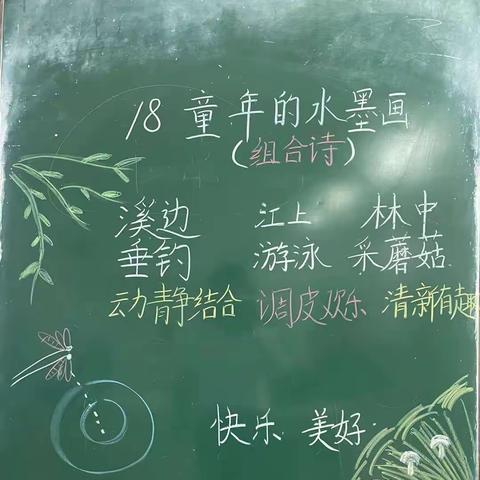 18 童年的水墨画
（组合诗）
溪边 江上 林中
垂钓 游泳 采蘑菇
动静结合 调皮欢乐 清新有趣
快乐 美好